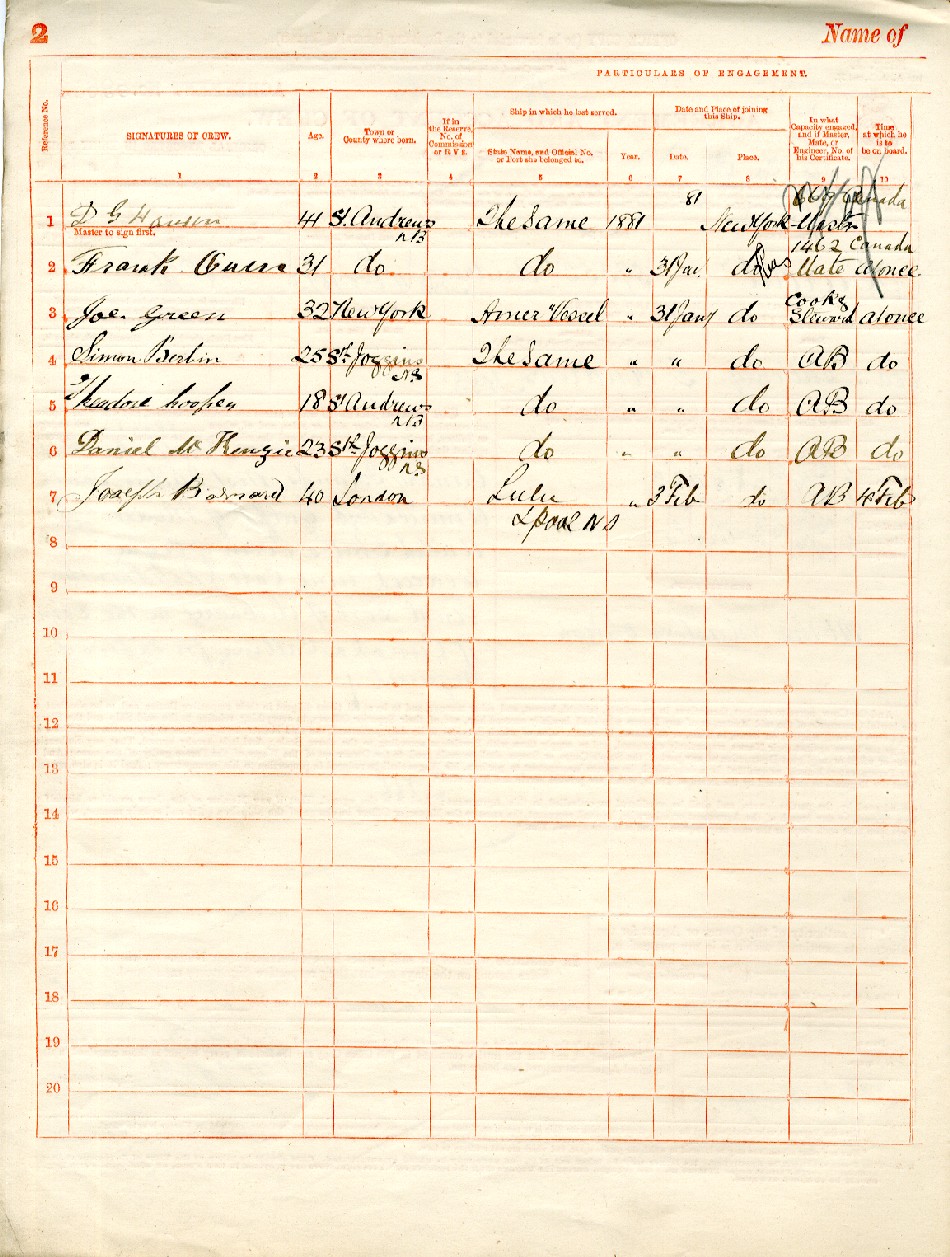 2
Name of
PARTICULARS OF ENGAGEMENT.
Reference No.
SIGNATURES OF CREW.
Age.
Town or
County where born.
If in
the Reserve,
No. of
Commission
or R V 2.
Ship in which he last served.
State Name, and Official No.
or Port she belonged to.
Year.
Date and Place of joining
this Ship.
Date.
Place.
In what
Capacity engaged,
and if Master,
Mate, or
Engineer, No. of
his Certificate.
Time
at which he
is to
be on board.
1 2 3 4 5 6 7 8 9 10
81 Canada
1 41 St Andrews The Same 1881 New York
Master to sign first. NB
1462 Canada
2 Frank 31 do do " 31 Jany do Mate at once
Cook &
3 Joe Green 32 New York Amer Vessel " 31 Jany do Steward at once
4 Simon Berlin 25 St Joggins The Same " " do AB do
NS
5 Theodore 18 St Andrews do " " do AB do
NB
6 Daniel McKenzie 23 St Joggins do " " do AB do
NS
7 Joseph Barnard 40 London Lulu " 3 Feb do AB 4 Feb
LPool NS
8
9
10
11
12
13
14
15
16
17
18
19
20